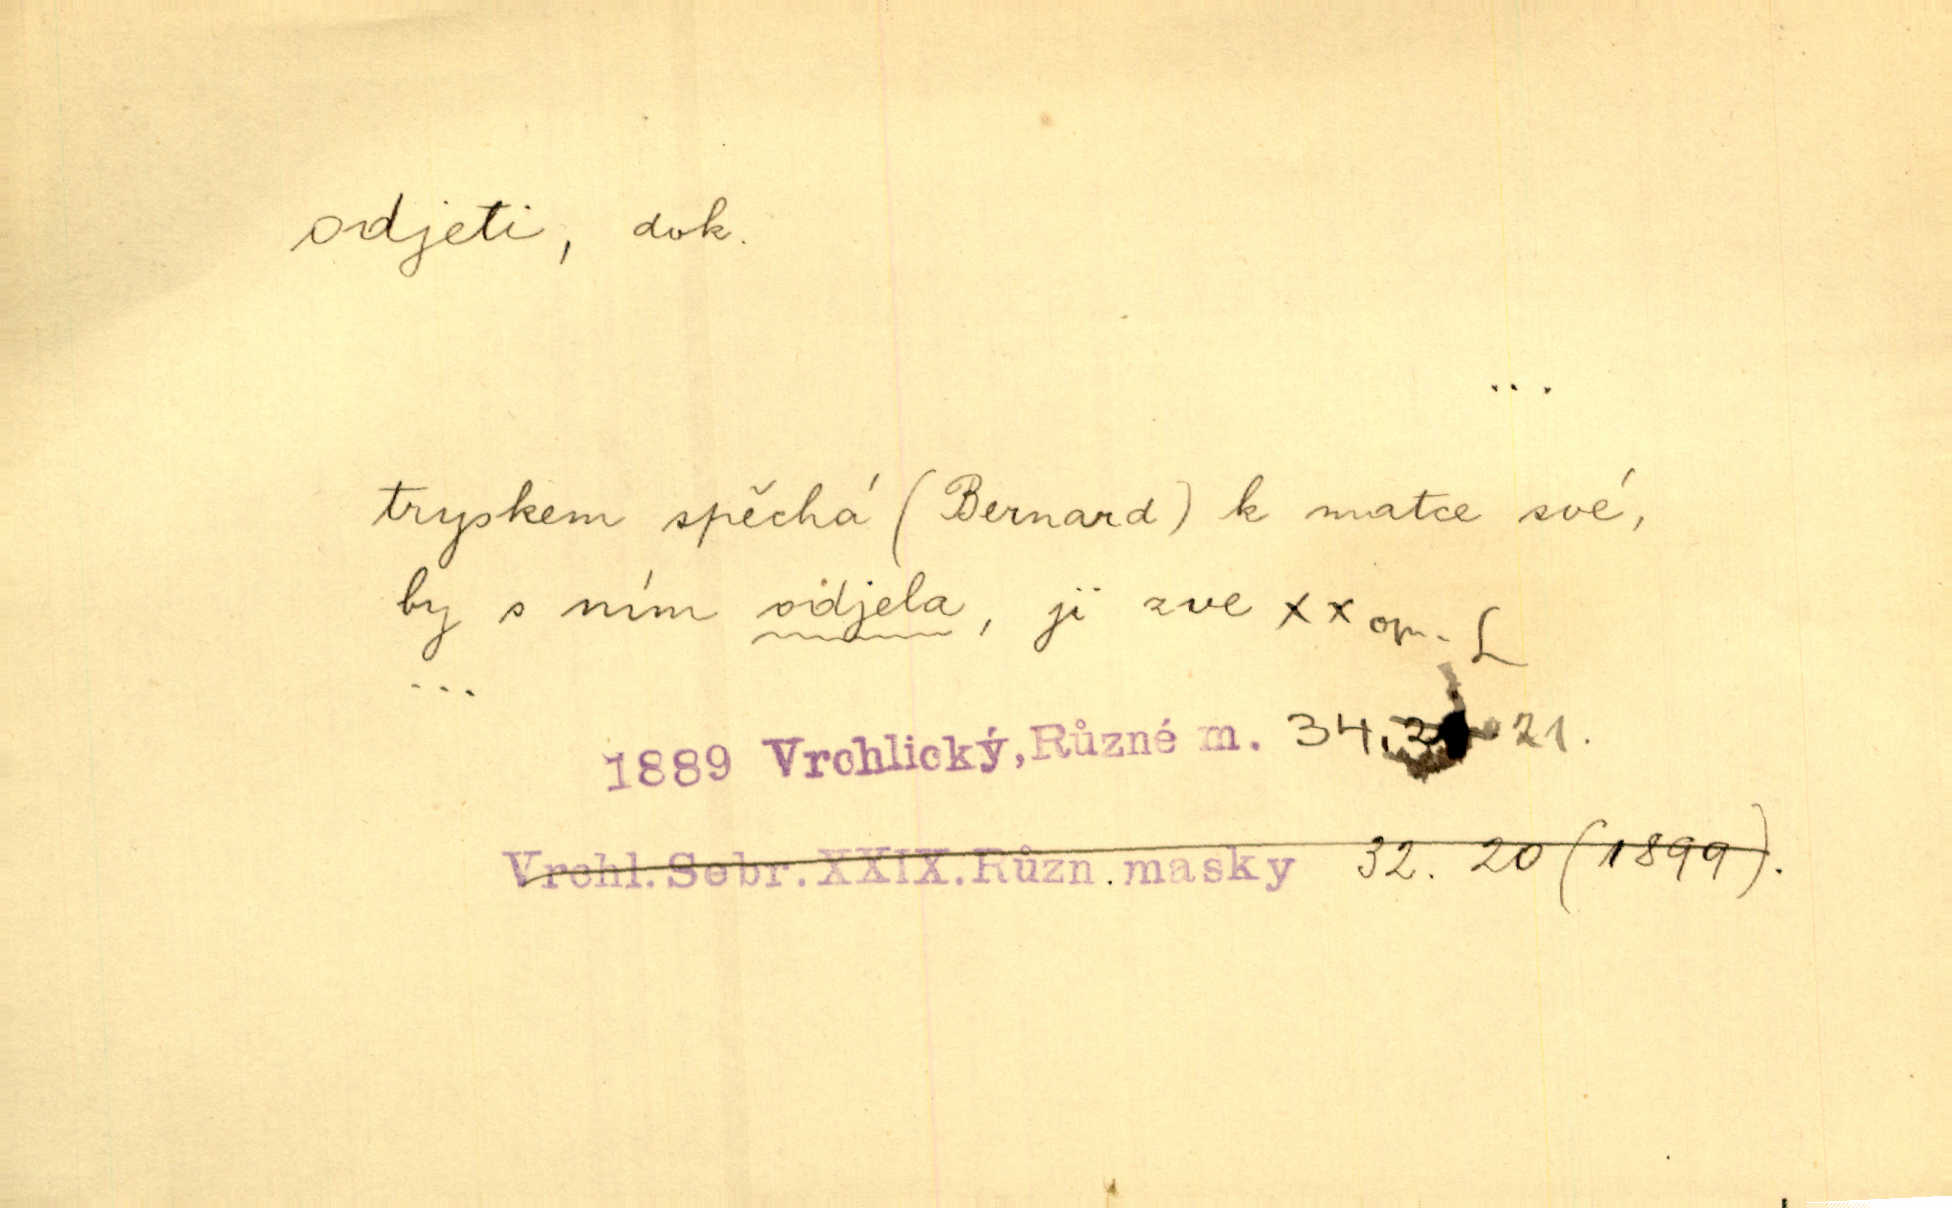 odjeti, dok.
...
tryskem spěchá (Bernard) k matce své,
by s ním odjela, ji zve x x op. L
...
1889 Vrchlický, Různé m. 34. 21.
Vrchl. Sebr. XXIX. Různ. masky 32. 20 (1899).